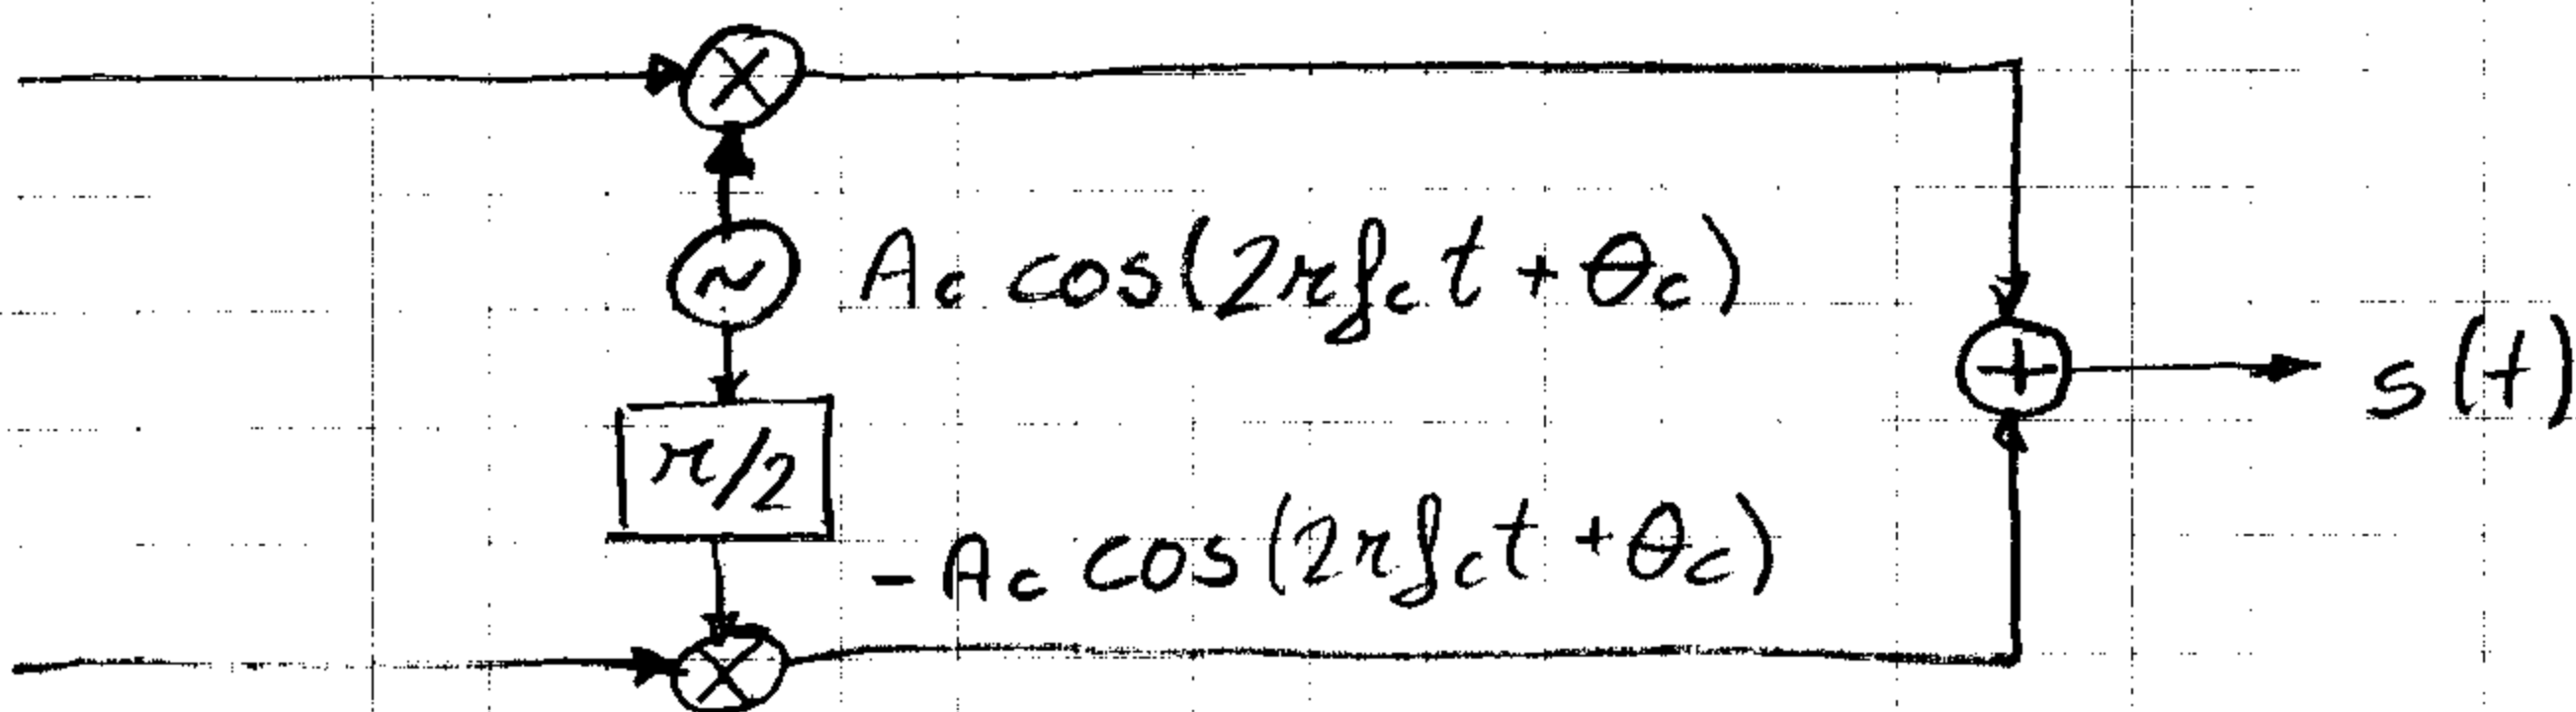 A_c cos(2πf_c t + θ_c)
s(t)
π/2
-A_c cos(2πf_c t + θ_c)